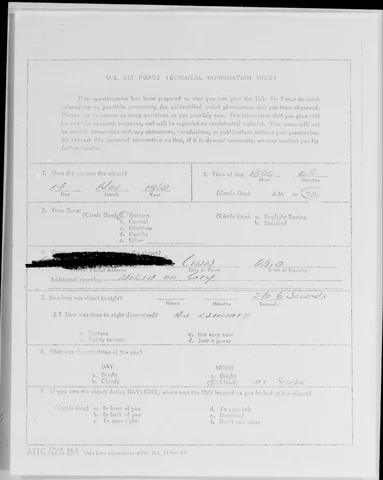 U.S. AIR FORCE TECHNICAL INFORMATION SHEET
This questionnaire has been prepared so that you can give the U.S. Air Force as much
information as possible concerning the unidentified aerial phenomenon that you have observed.
Please try to answer as many questions as you possibly can. The information that you give will
be used for research purposes, and will be regarded as confidential material. Your name will not
be used in connection with any statements, conclusions, or publications without your permission.
We request this personal information so that, if it is deemed necessary, we may contact you for
further details.
1. When did you see the object? 2. Time of day:
Day Month Year Hour Minutes
(Circle One): A.M. or P.M.
3. Time Zone:
(Circle One): a. Eastern (Circle One): a. Daylight Saving
b. Central b. Standard
c. Mountain
d. Pacific
e. Other
Ohio
Postal Address City or Town State or County
Additional remarks: OF CITY
5. How long was object in sight? 5 to 6 Seconds
Hours Minutes Seconds
5.1 How was time in sight determined? An estimate
a. Certain c. Not very sure
b. Fairly certain d. Just a guess
6. What was the condition of the sky?
DAY NIGHT
a. Bright a. Bright
b. Cloudy b. Cloudy
7. If you saw the object during DAYLIGHT, where was the SUN located as you looked at the object?
(Circle One): a. In front of you d. To your left
b. In back of you e. Overhead
c. To your right f. Don't remember
ATIC FORM 164 This form supersedes ATIC 164,